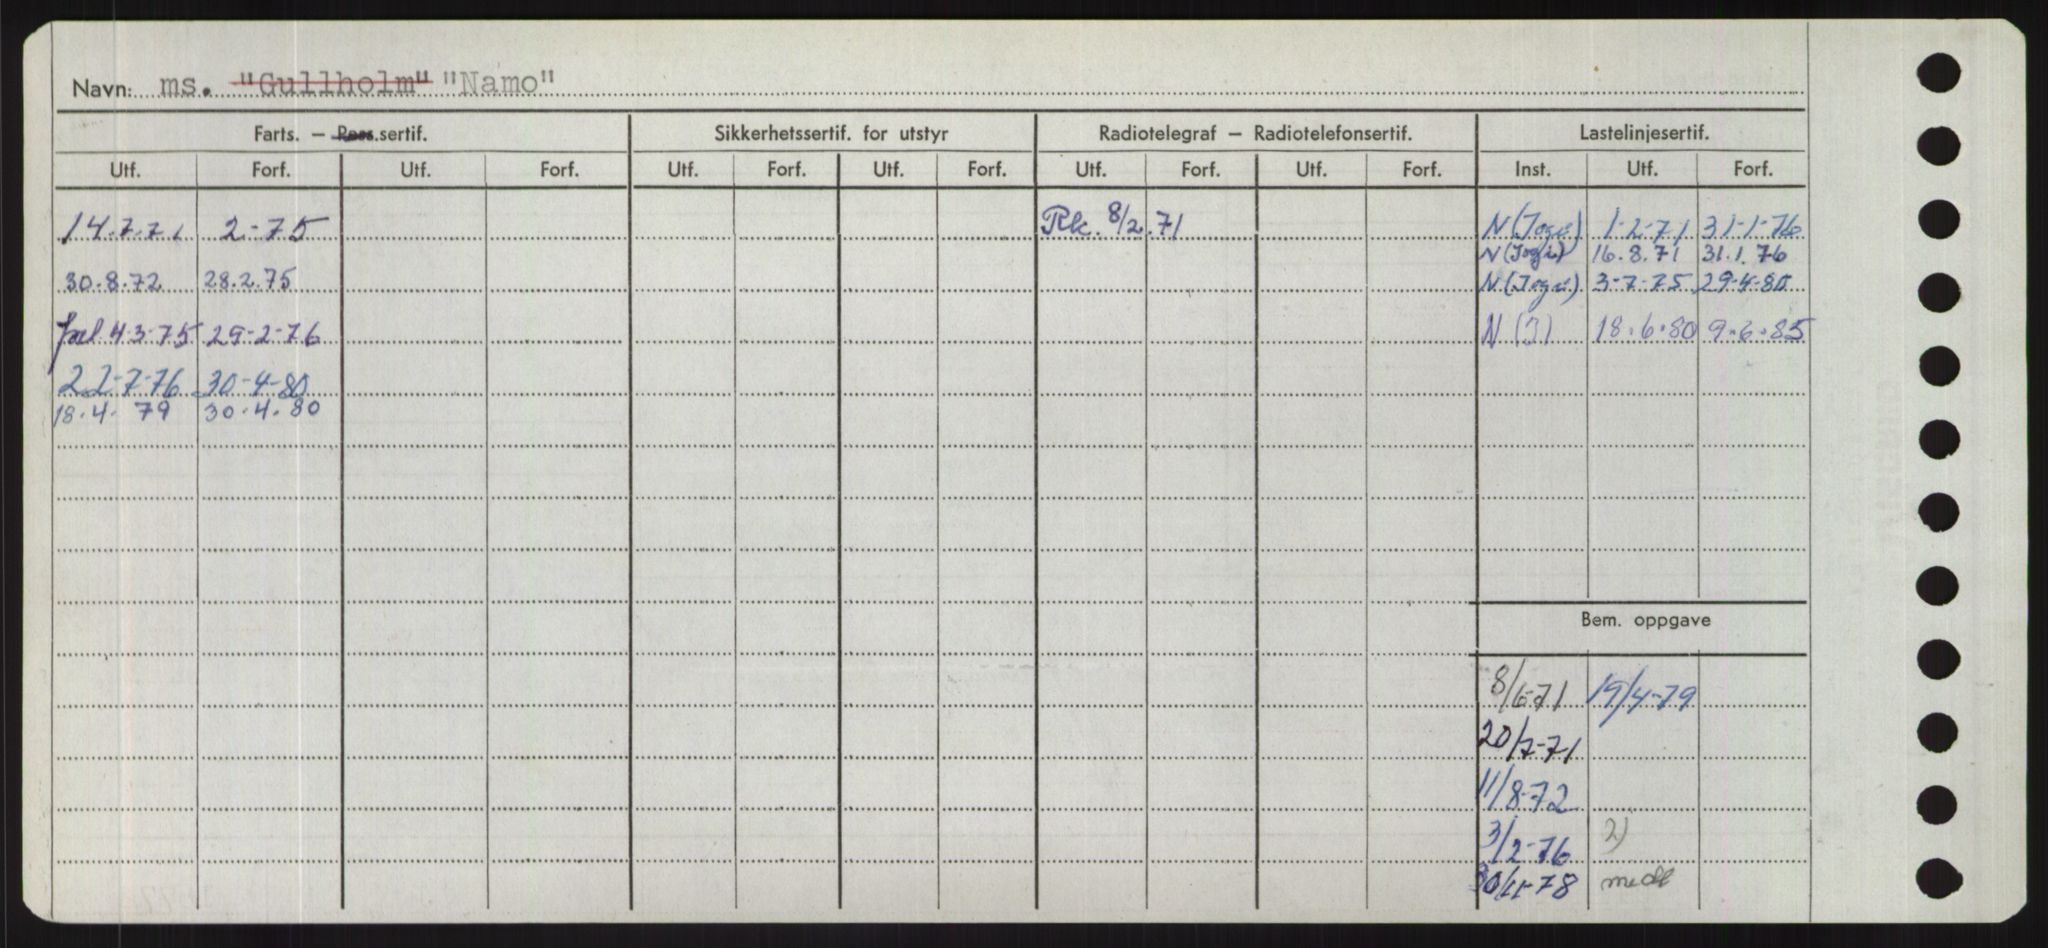 Navn: ms. "Gullholm" "Namo"
Farts. — Pass.sertif. Sikkerhetssertif. for utstyr Radiotelegraf — Radiotelefonsertif. Lastelinjesertif.
Utf. Forf. Utf. Forf. Utf. Forf. Utf. Forf. Utf. Forf. Utf. Forf. Inst. Utf. Forf.
14.7.71 2-75 8/2.71 N 1-2-71 31-1-76
N 16.8.71 31.1.76
30.8.72 28.2.75 N 3-7-75 29-4-80
4-3-75 29-2-76 N (3) 18.6.80 9.6.85
22-7-76 30-4-80
18.4.79 30.4.80
Bem. oppgave
8/6-71 19/4-79
20/7-71
11/8-72
3/2-76 2)
30/11-78 medt